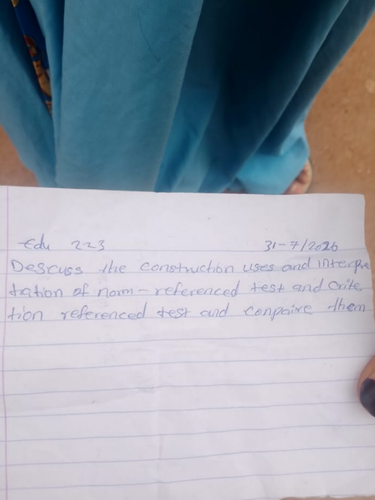 Edu 223 31-7/2026
Descuss the construction uses and interpre
tation of norm-referenced test and crite
tion referenced test and conpaire them